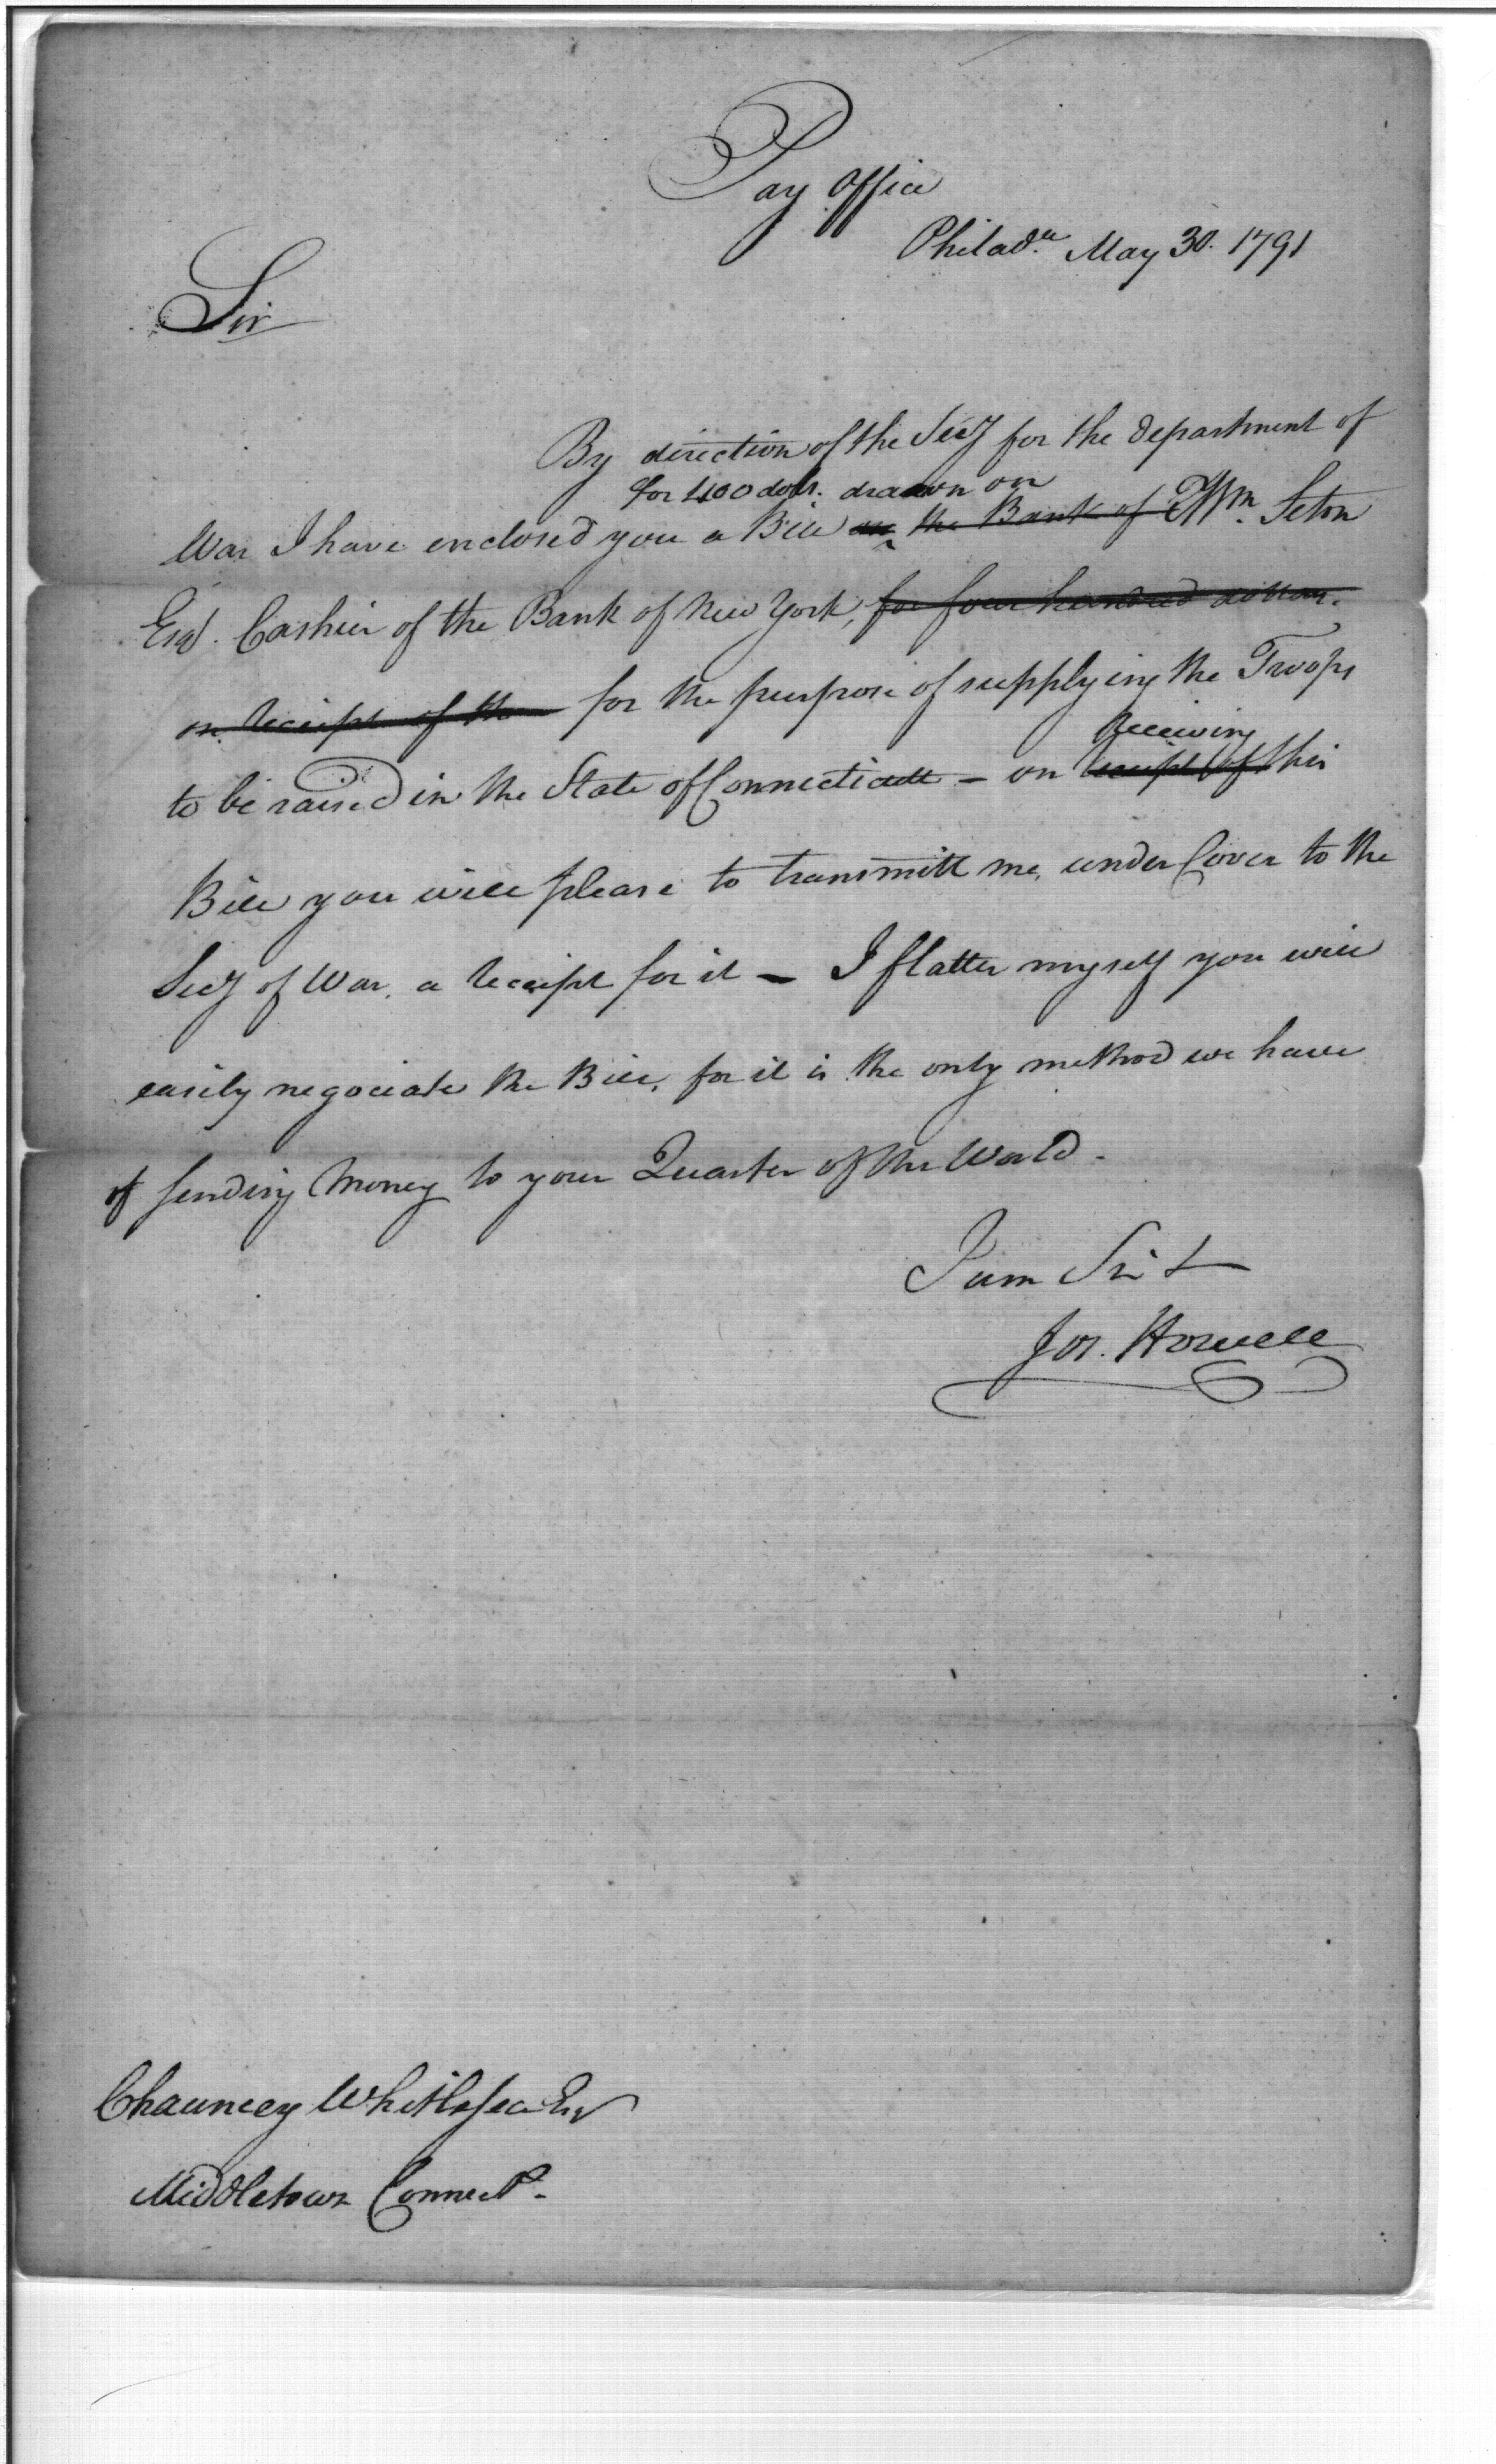 Pay Office
Philad.a May 30. 1791
Sir
By direction of the Secy for the department of
for 400 dolls. drawn on
War I have enclosed you a Bill on the Bank of Wm. Seton
Esqr. Cashier of the Bank of New York, for four hundred dollars.
on receipt of the for the purpose of supplying the Troops
receiving
to be raised in the State of Connecticutt – on receipt of this
Bill you will please to transmitt me, under Cover to the
Secy of War, a receipt for it – I flatter myself you will
easily negociate the Bill, for it is the only method we have
of sending Money to your Quarter of the World.
I am Sir &
Jos. Howell
Chauncey Whittlesea Esqr
Middletown Connect.